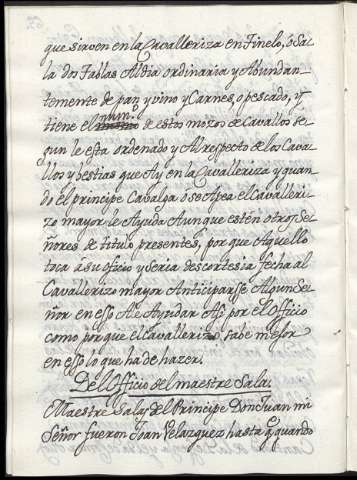 que sirven en la Cavalleriza en Tinelo, ô Sa
la dos Tablas Al dia ordinaria y Abundan
temente de pan y vino y Carnes, o pescado, y
tiene el num.º de estos mozos de Cavallos se
gun le esta ordenado y Al respecto de los Cava
llos y bestias que Ay en la Cavalleriza y quan
do el principe Cavalga ô se Apea el Cavalleri
zo mayor le Ayuda Aunque estén otros Se
ñores de titulo presentes, por que Aquello
toca â su oficio y Seria descortesia fecha al
Cavallerizo mayor Anticiparsse Algun Se
ñor en esso de Ayudar Assi por el Officio
como porque el Cavallerizo sabe mejor
en esso lo que ha de hazer.
Del Officio del maestre Sala.
Maestre Salas del Principe Don Juan mi
Señor fueron Joan Velazquez hasta q quando